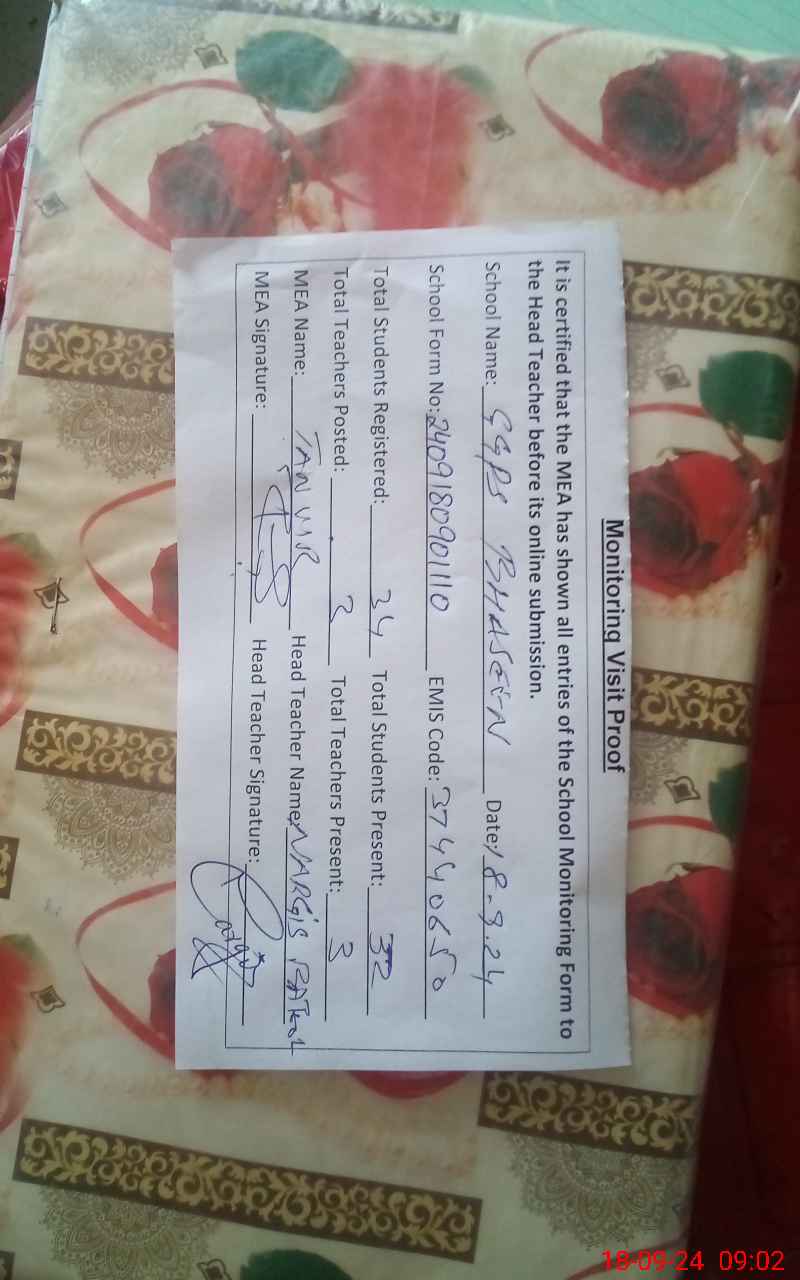 Monitoring Visit Proof
It is certified that the MEA has shown all entries of the School Monitoring Form to
the Head Teacher before its online submission.
School Name: GGPS BHASEIN Date: 18-9-24
School Form No: 2409180901110 EMIS Code: 37440650
Total Students Registered: 34 Total Students Present: 32
Total Teachers Posted: Total Teachers Present: 3
MEA Name: TANVIR Head Teacher Name: NARGIS
MEA Signature: Head Teacher Signature:
18-09-24 09:02